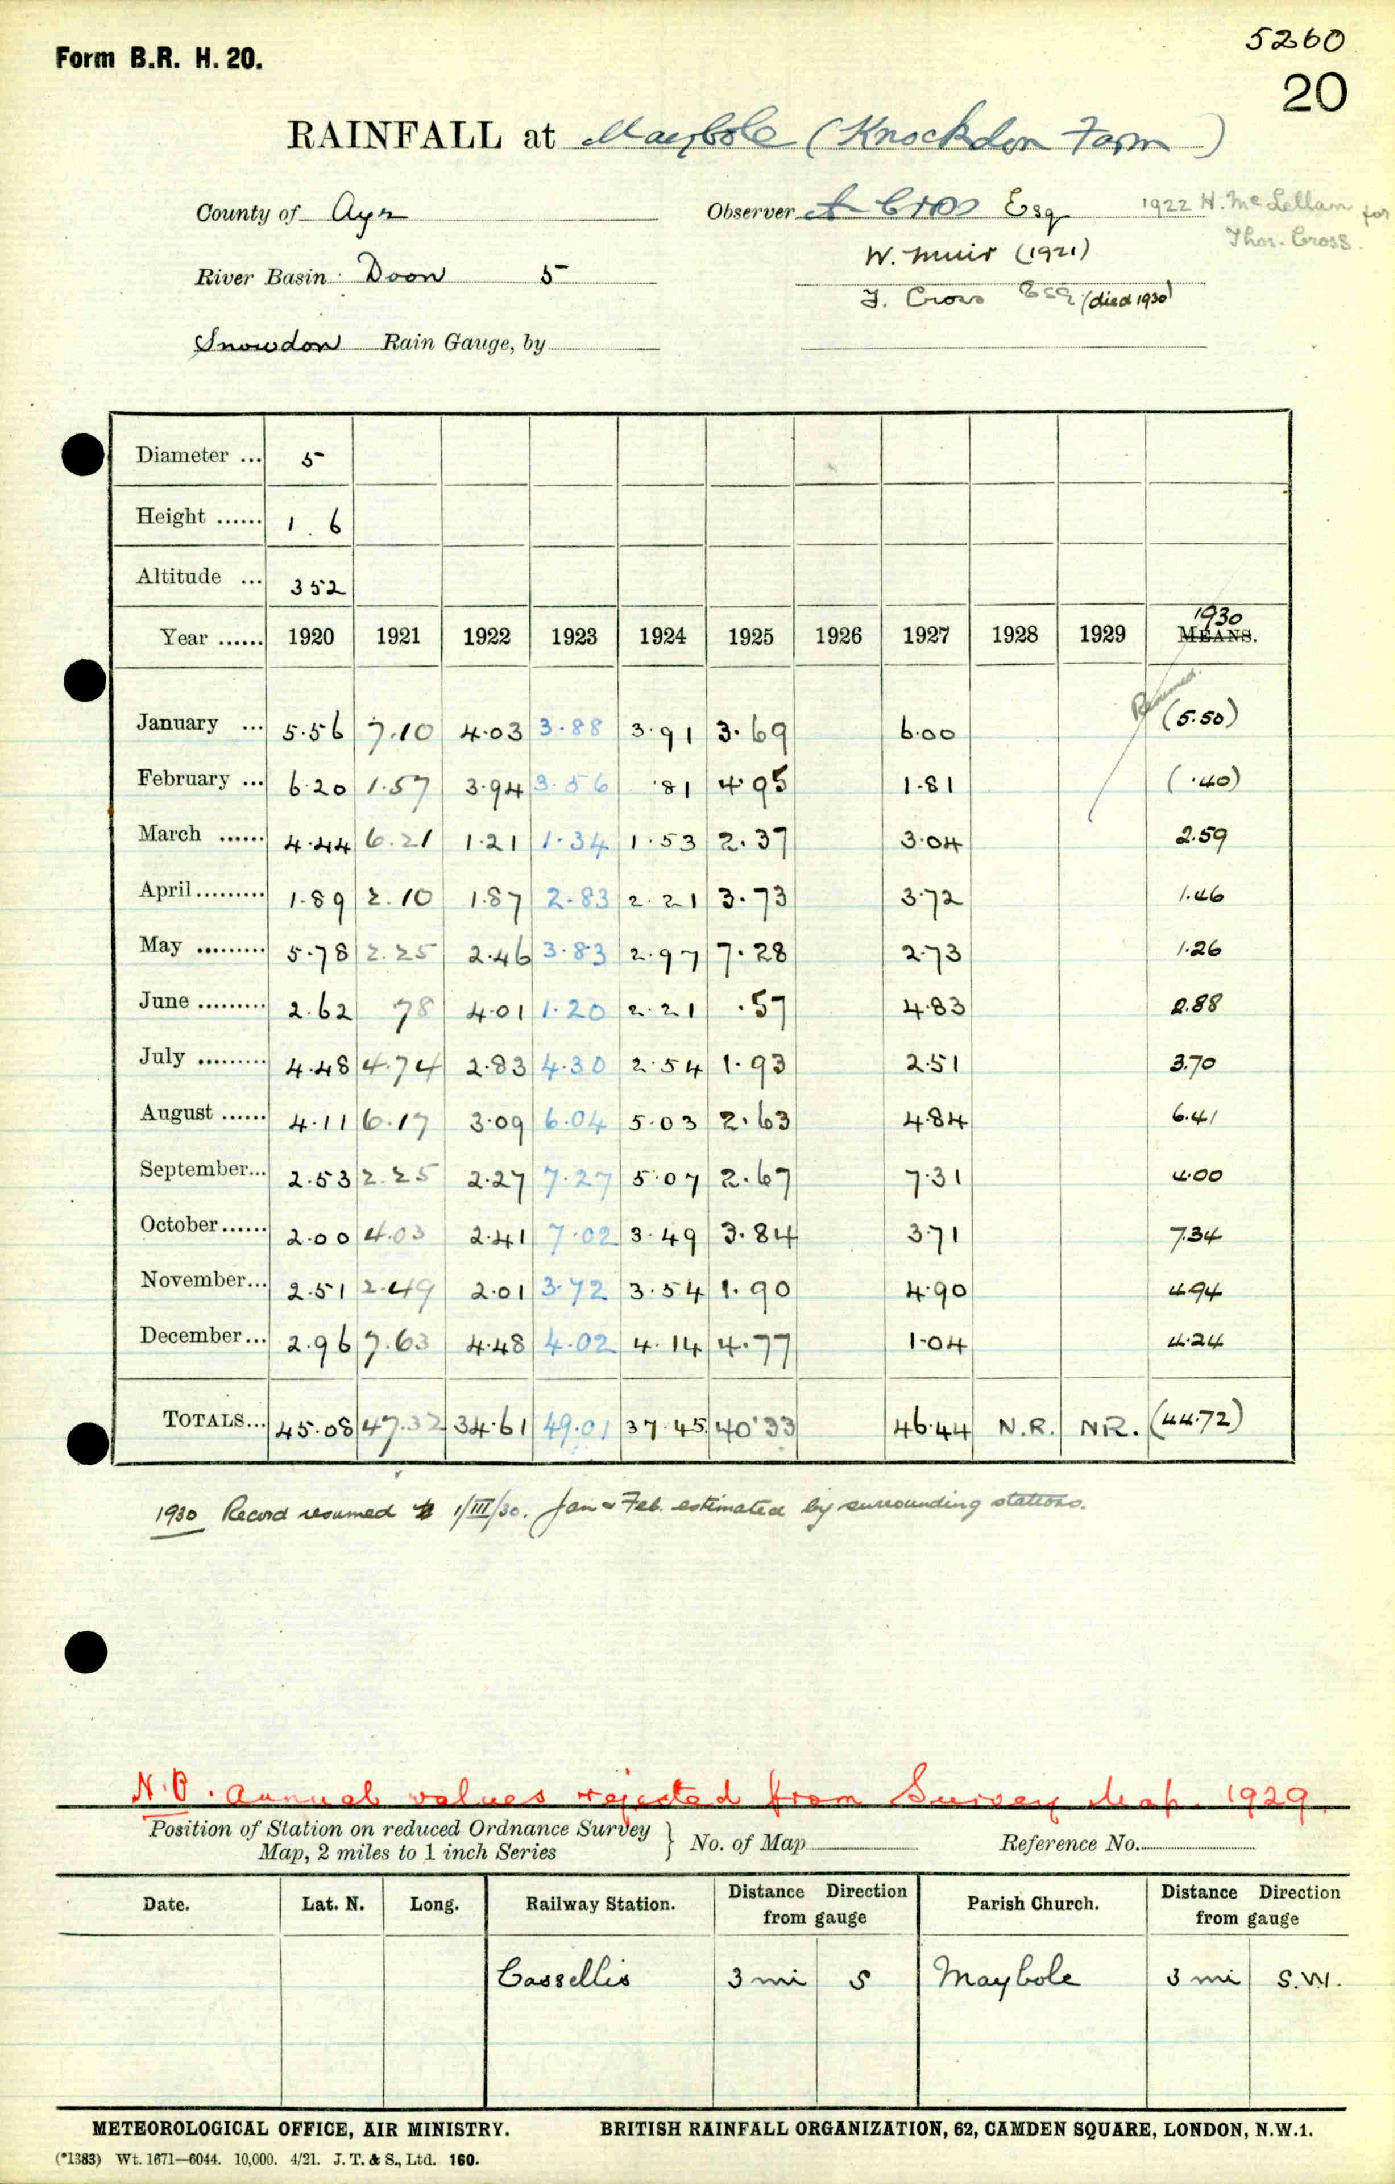 5260
Form B.R. H. 20.
20
RAINFALL at Maybole (Knockdon Farm)
County of Ayr
Observer A Cross Esq 1922 H. McLellan for
Thos. Cross.
W. Muir (1921)
River Basin Doon 5
T. Cross Esq (died 1930)
Snowdon Rain Gauge, by
Diameter ... 5
Height ...... 1 . 6
Altitude ... 352
1930
Year ...... 1920 1921 1922 1923 1924 1925 1926 1927 1928 1929 MEANS.
Resumed
January ... 5.56 7.10 4.03 3.88 3.91 3.69 6.00 (5.50)
February ... 6.20 1.57 3.94 3.56 .81 4.95 1.81 (.40)
March ...... 4.44 6.21 1.21 1.34 1.53 2.37 3.04 2.59
April ......... 1.89 2.10 1.87 2.83 2.21 3.73 3.72 1.46
May ......... 5.78 2.25 2.46 3.83 2.97 7.28 2.73 1.26
June ......... 2.62 78 4.01 1.20 2.21 .57 4.83 2.88
July ......... 4.48 4.74 2.83 4.30 2.54 1.93 2.51 3.70
August ...... 4.11 6.17 3.09 6.04 5.03 2.63 4.84 6.41
September... 2.53 2.25 2.27 7.27 5.07 2.67 7.31 4.00
October...... 2.00 4.03 2.41 7.02 3.49 3.84 3.71 7.34
November... 2.51 2.49 2.01 3.72 3.54 1.90 4.90 4.94
December... 2.96 7.63 4.48 4.02 4.14 4.77 1.04 4.24
TOTALS... 45.08 47.32 34.61 49.01 37.45 40.33 46.44 N.R. NR. (44.72)
1930 Record resumed 1/III/30. Jan & Feb. estimated by surrounding stations.
N.B. Annual values rejected from Survey Map. 1929.
Position of Station on reduced Ordnance Survey
Map, 2 miles to 1 inch Series } No. of Map Reference No.
Date. Lat. N. Long. Railway Station. Distance from gauge Direction Parish Church. Distance from gauge Direction
Cassellis 3 mi S Maybole 3 mi S.W.
METEOROLOGICAL OFFICE, AIR MINISTRY. BRITISH RAINFALL ORGANIZATION, 62, CAMDEN SQUARE, LONDON, N.W.1.
(*1383) Wt. 1671—6044. 10,000. 4/21. J. T. & S., Ltd. 160.